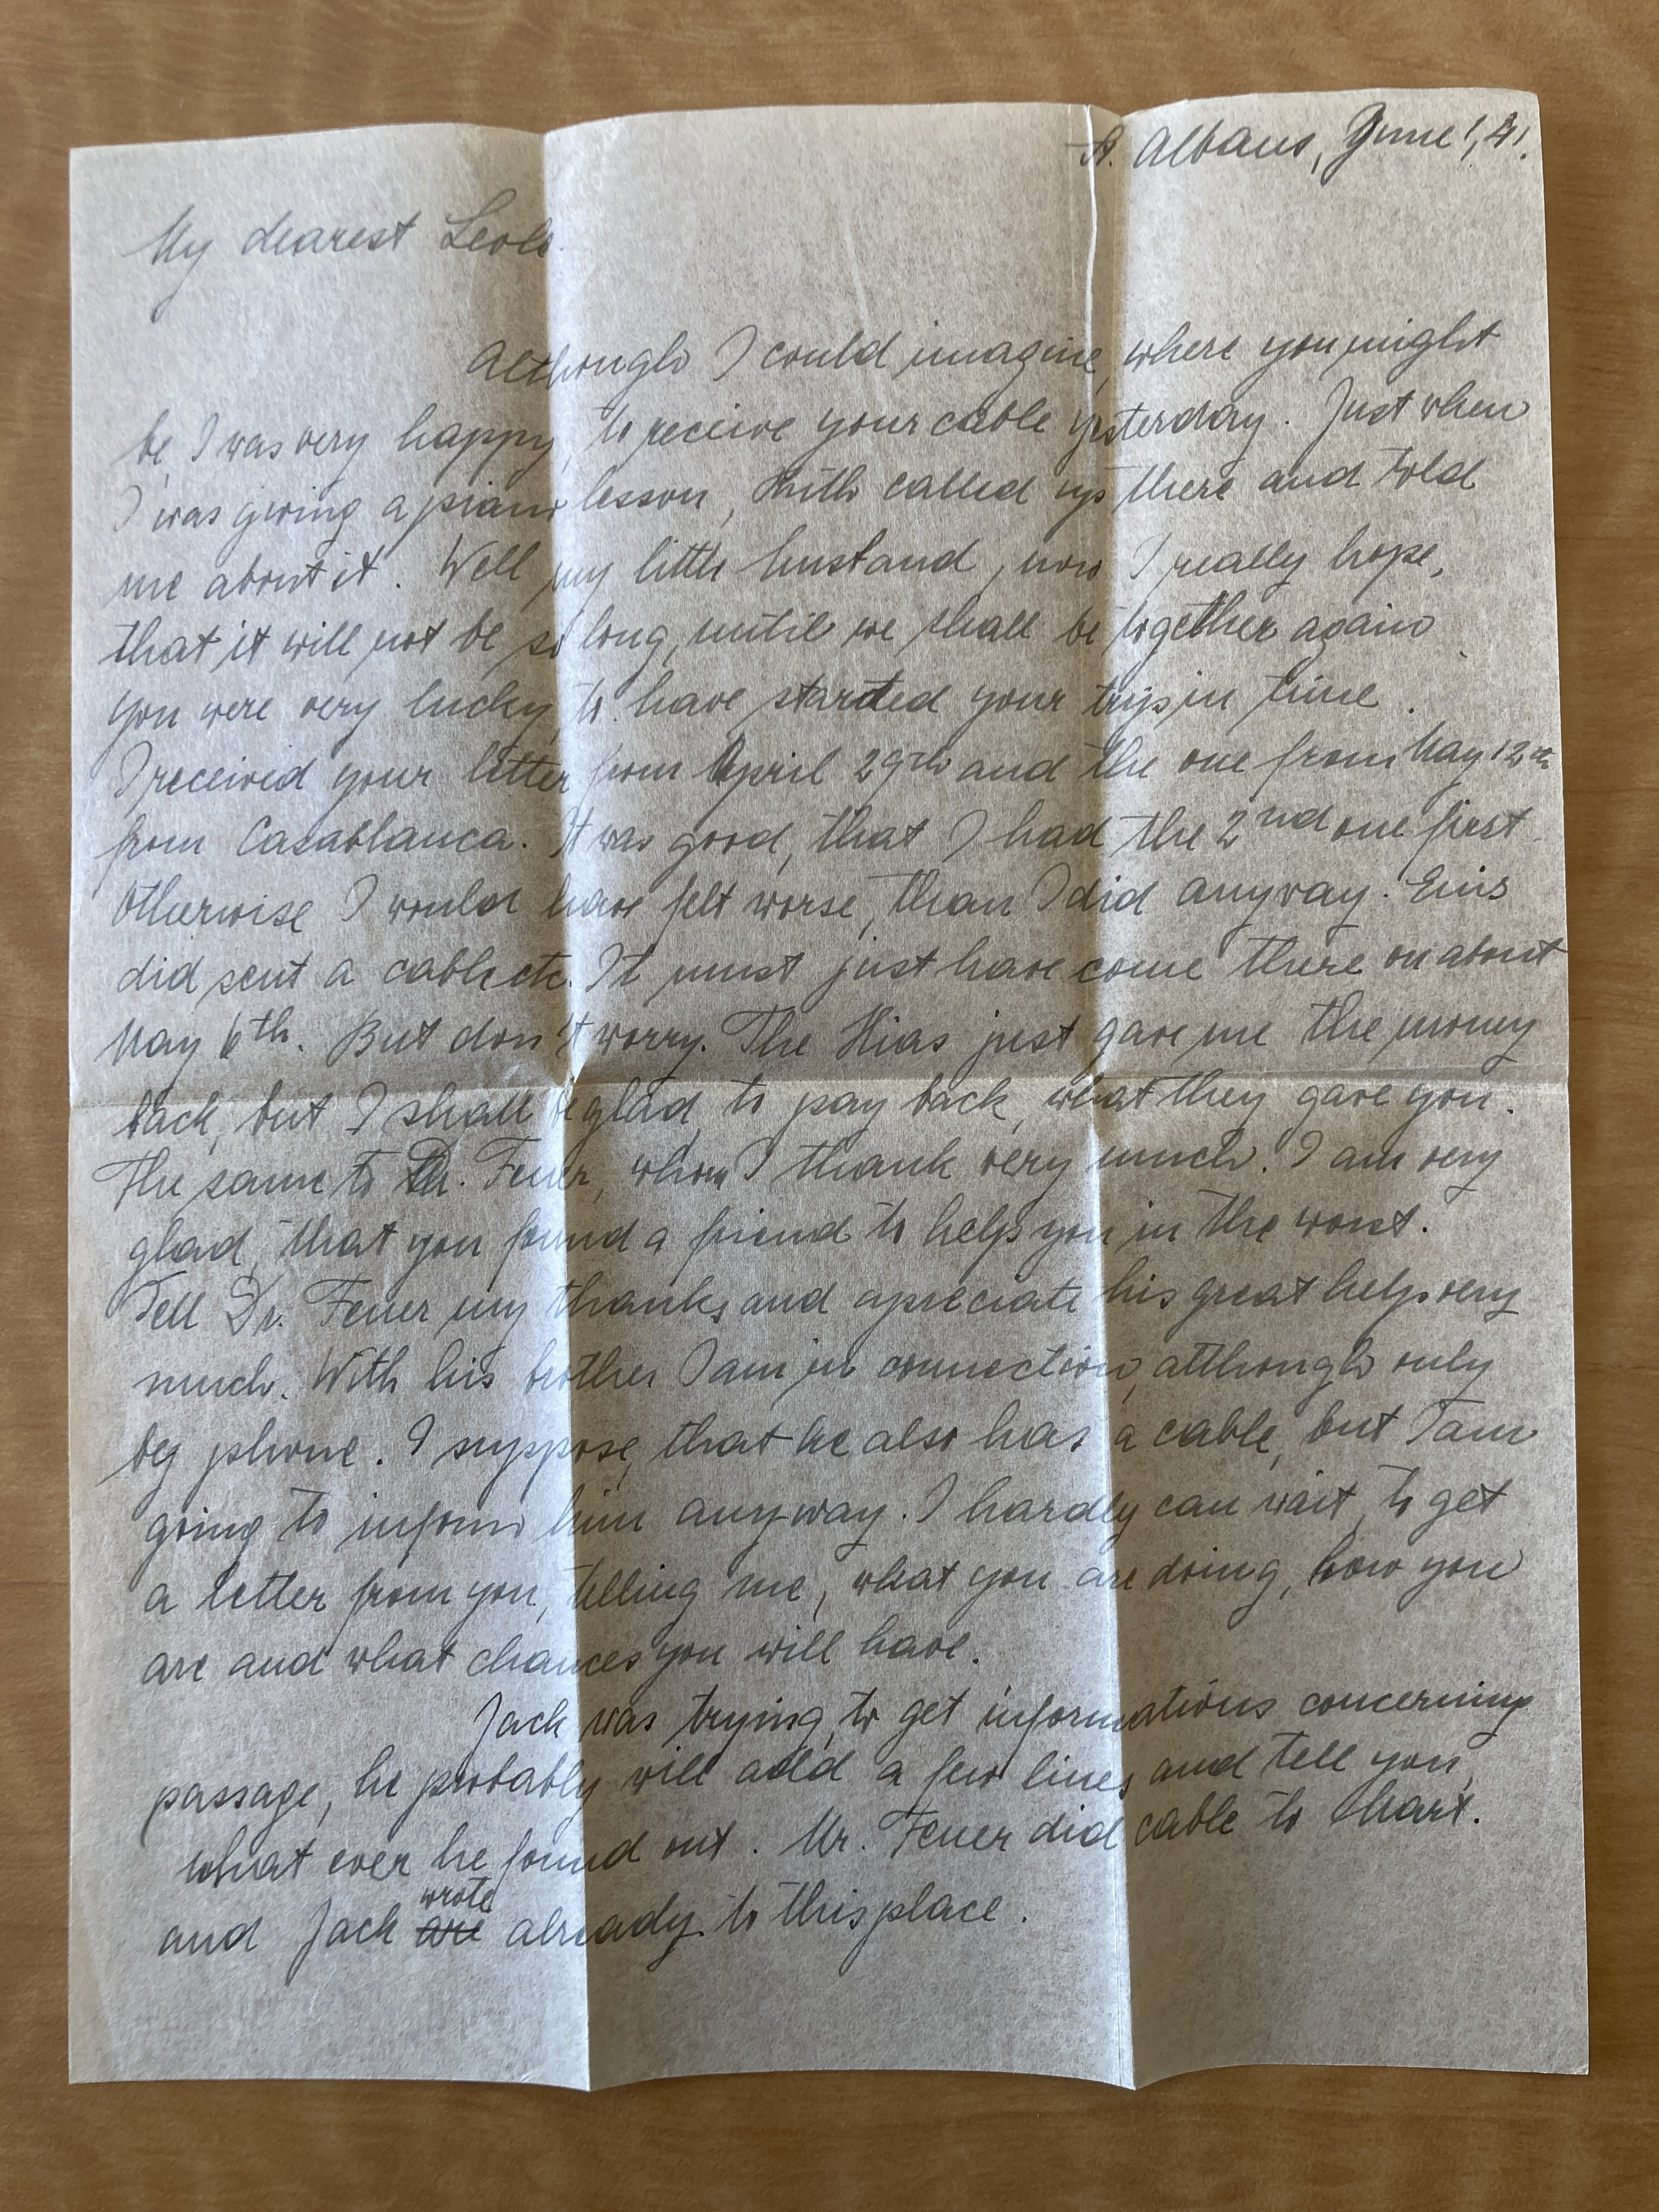 St. Albans, June 1, 41.
My dearest
Although I could imagine, where you might
be, I was very happy, to receive your cable yesterday. Just when
I was giving a piano lesson, Ruth called up there and told
me about it. Well my little husband, now I really hope,
that it will not be so long, until we shall be together again.
You were very lucky, to have started your trip in time.
I received your letter from April 29th and the one from May 12th
from Casablanca. It was good, that I had the 2nd one first.
Otherwise I would have felt worse, than I did anyway.
did sent a cable etc. It must just have come there on about
May 6th. But don't worry. The Hias just gave me the money
back, but I shall be glad, to pay back, what they gave you.
The same to Dr. Feuer, whom I thank very much. I am very
glad, that you found a friend to help you in the worst.
Tell Dr. Feuer my thanks and apreciate his great help very
much. With his brother I am in connection, although only
by phone. I suppose, that he also has a cable, but I am
going to inform him anyway. I hardly can wait, to get
a letter from you, telling me, what you are doing, how you
are and what chances you will have.
Jack was trying, to get informations concerning
passage, he probably will add a few lines and tell you,
what ever he found out. Mr. Feuer did cable to
and Jack wrote already to this place.